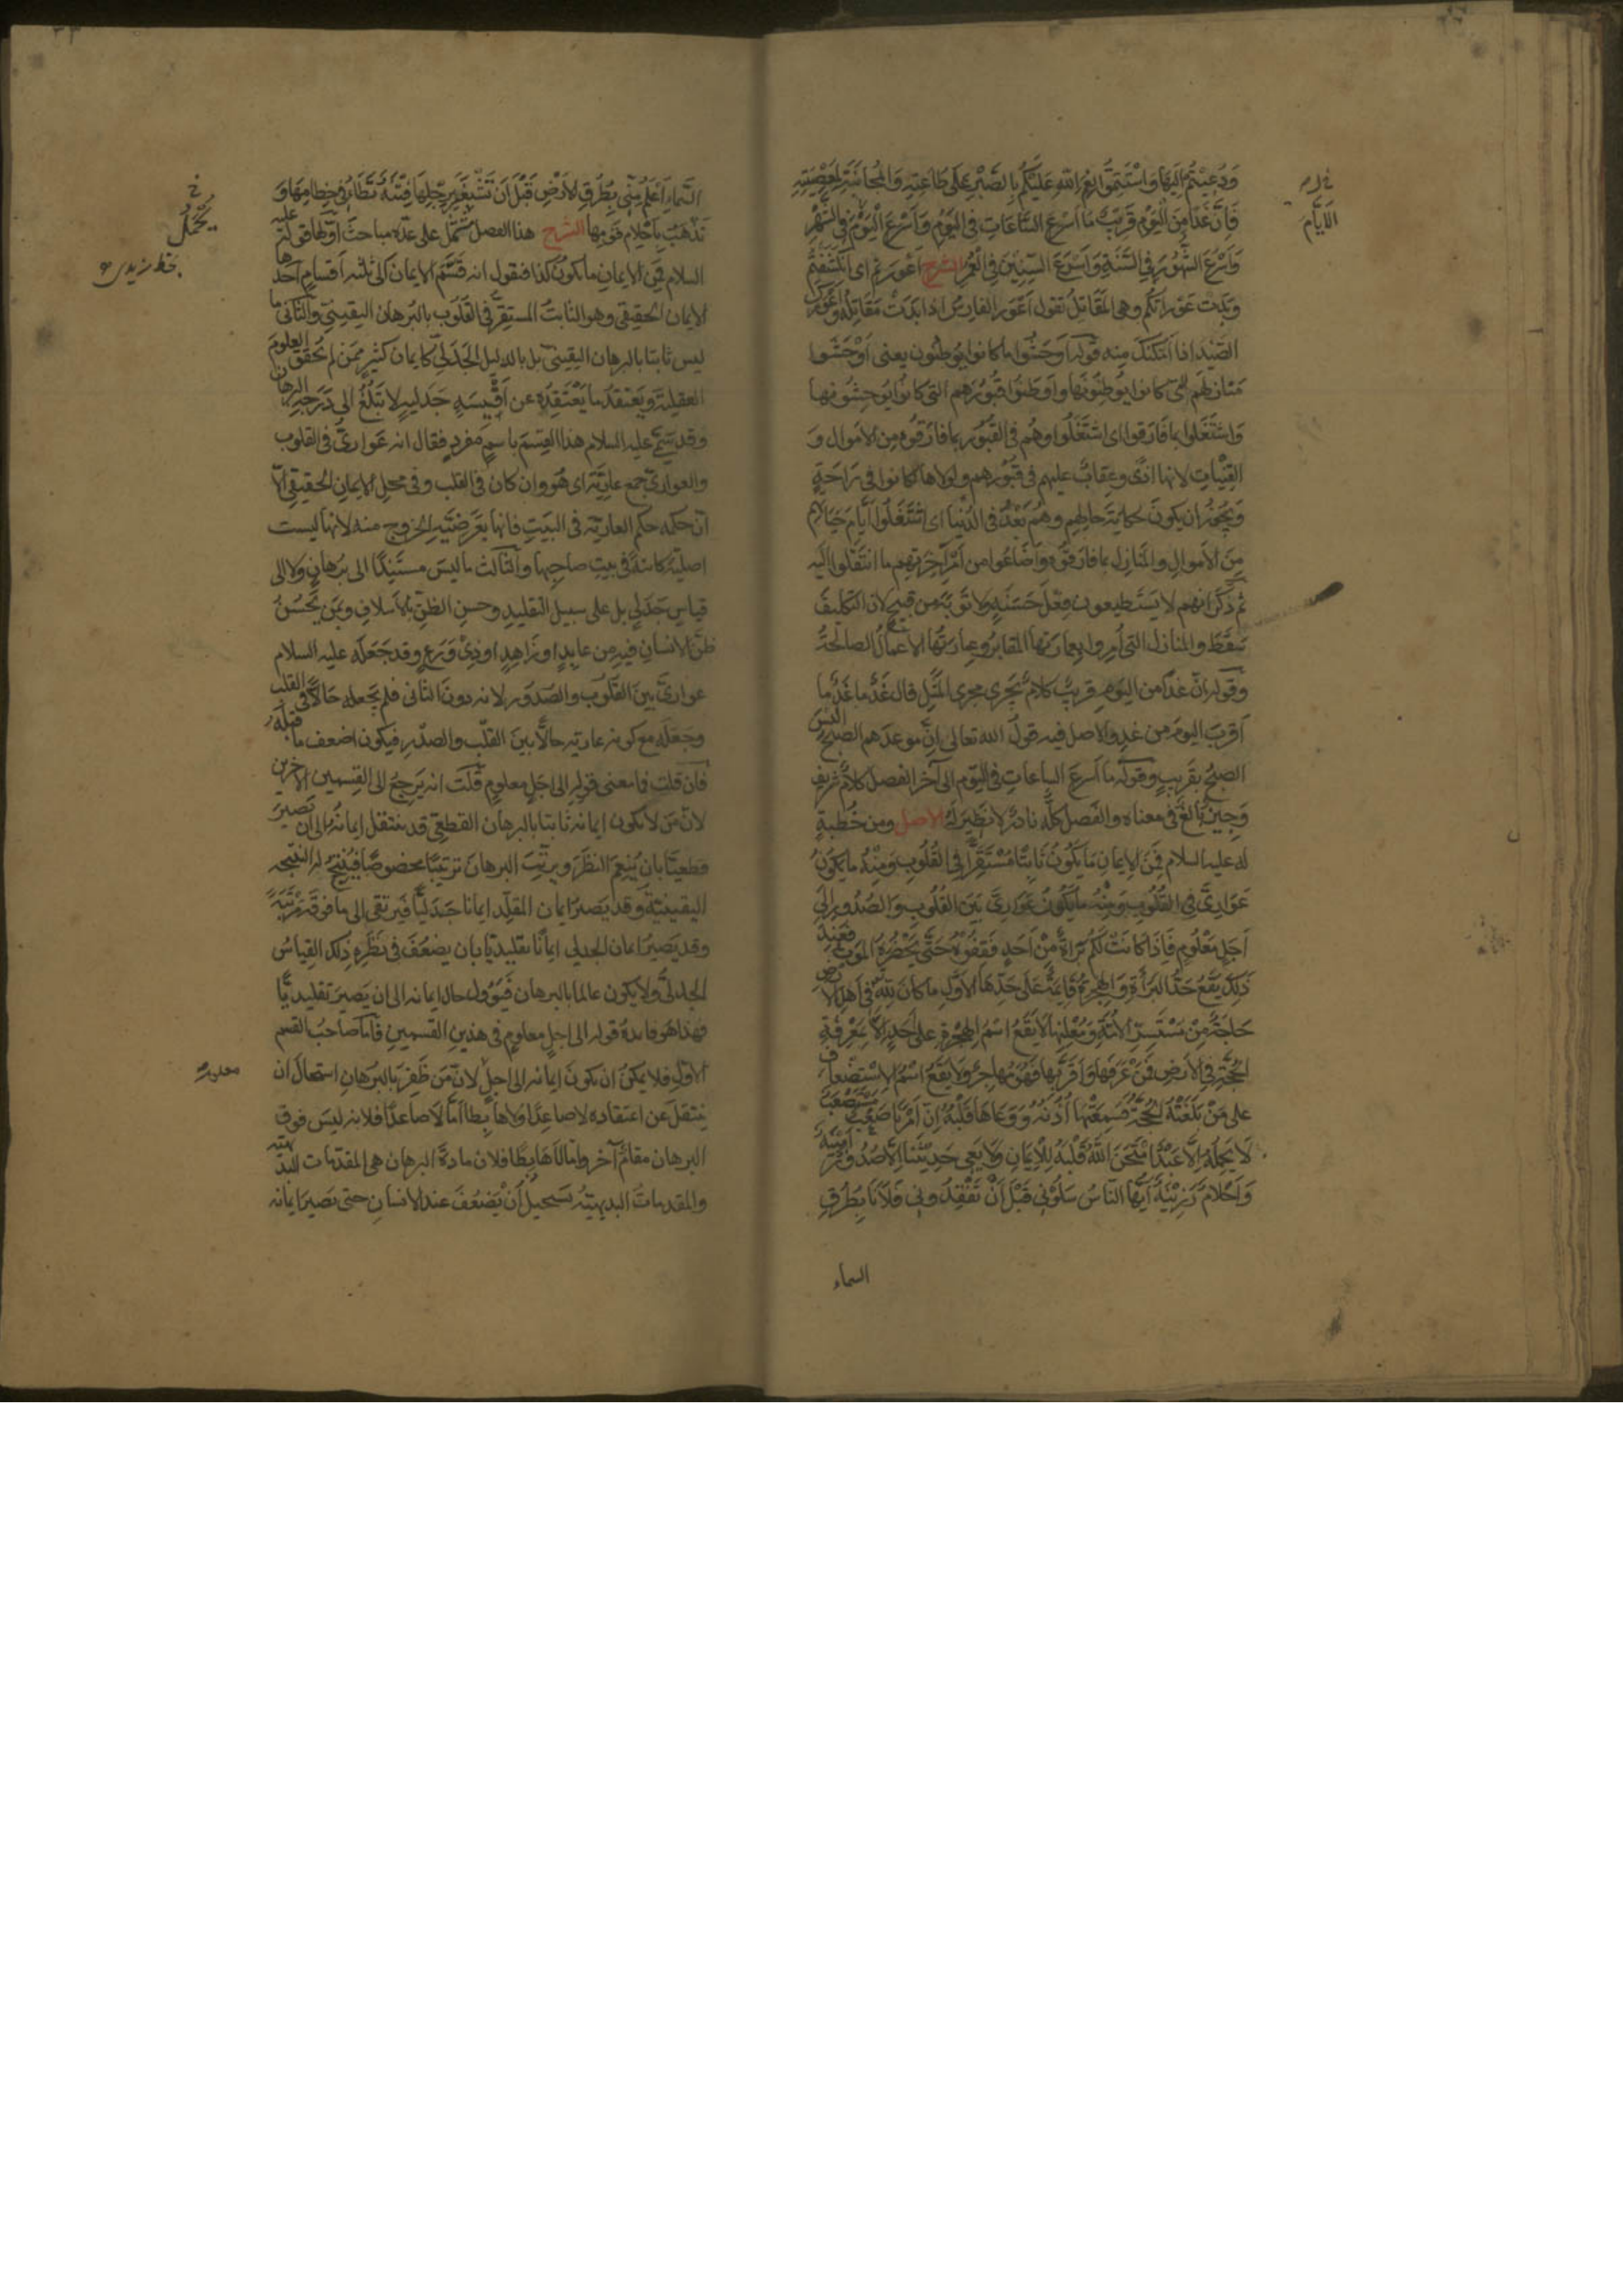 وَدُعِيتُم إليها واستتموا نعم الله عليكم بالصَّبر على طاعته والمجانبة لمعصيته
فانّ غدًا من اليوم قريب ما اسرع الساعات في اليوم واسرع اليوم في الشهر
واسرع الشهور في السنة واسرع السنين في العمر الشرح اعورتم اى انكشفتم
وبدت عوراتكم وهى المقاتل تقول اعور الفارس اذا بدت مقاتله واعورك
الصيد اذا امكنك منه قوله اوحشوا ما كانوا يوطنون يعنى اوحشوا
منازلهم التى كانوا يوطنونها واوطنوا قبورهم التى كانوا يوحشونها
واشتغلوا بما فارقوا اى اشتغلوا وهم فى القبور بما فارقوه من الاموال و
القينات لانها اذى وعقاب عليهم فى قبورهم ولولاها لكانوا فى راحة
ويجوز ان يكون حكاية حالهم وهم بعد فى الدنيا اى اشتغلوا ايام حياتهم
من الاموال والمنازل بما فارقوه واضاعوا من امر آخرتهم ما انتقلوا اليه
ثم ذكر انهم لا يستطيعون فعل حسنة ولا توبة من قبيح لان التكليف
سقط والمنازل التى امروا بعمارتها المقابر وعمارتها الاعمال الصالحة
وقوله انّ غدًا من اليوم قريب كلام يجرى مجرى المثل قال غد ما غد ما
اقرب اليوم من غد والاصل فيه قول الله تعالى ان موعدهم الصبح اليس
الصبح بقريب وقوله ما اسرع الساعات فى اليوم الى آخر الفصل كلام شريف
وجيز بالغ فى معناه والفصل كله نادر لا نظير له الاصل ومن خطبة
له عليه السلام فمن الايمان ما يكون ثابتا مستقرا فى القلوب ومنه ما يكون
عوارى فى القلوب ومنه ما يكون عوارى بين القلوب والصدور الى
اجل معلوم فاذا كانت لكم براءة من احد فقفوه حتى يحضره الموت فعند
ذلك يقع حد البراءة والهجرة قائمة على حدها الاول ما كان لله فى اهل الارض
حاجة من مستسر الامة ومعلنها لا يقع اسم الهجرة على احد الا بمعرفة
الحجة فى الارض فمن عرفها واقر بها فهو مهاجر ولا يقع اسم الاستضعاف
على من بلغته الحجة فسمعتها اذنه ووعاها قلبه ان امرنا صعب مستصعب
لا يحمله الا عبد امتحن الله قلبه للايمان ولا يعى حديثنا الا صدور امينة
واحلام رزينة ايها الناس سلونى قبل ان تفقدونى فلانا بطرق
السماء
الايام
السماء اعلم منى بطرق الارض قبل ان تشغر برجلها فتنة تطأ فى خطامها و
تذهب باحلام قومها الشرح هذا الفصل يشتمل على عدة مباحث اولها قوله عليه
السلام فمن الايمان ما يكون كذا فنقول انه قسم الايمان الى ثلثة اقسام احدها
الايمان الحقيقى وهو الثابت المستقر فى القلوب بالبرهان اليقينى والثانى ما
ليس ثابتا بالبرهان اليقينى بل بالدليل الجدلى كايمان كثير ممن لم يحقق العلوم
العقلية ويعتقد ما يعتقده عن اقيسة جدلية لا تبلغ الى درجة البرهان
وقد سمى عليه السلام هذا القسم باسم مفرد فقال انه عوارى فى القلوب
والعوارى جمع عارية اى هو وان كان فى القلب وفى محل الايمان الحقيقى الا
ان حكمه حكم العارية فى البيت فانها بعرضية الخروج منه لانها ليست
اصلية كائنة فى بيت صاحبها والثالث ما ليس مستندا الى برهان ولا الى
قياس جدلى بل على سبيل التقليد وحسن الظن بالاسلاف وبمن يحسن
ظن الانسان فيه من عابد او زاهد او ذى ورع وقد جعله عليه السلام
عوارى بين القلوب والصدور لانه دون الثانى فلم يجعله حالا فى القلب
وجعله مع كونه عارية حالا بين القلب والصدر فيكون اضعف مما قبله
فان قلت فما معنى قوله الى اجل معلوم قلت انه يرجع الى القسمين الاخرين
لان من لا يكون ايمانه ثابتا بالبرهان القطعى قد ينتقل ايمانه الى ان يصير
قطعيا بان ينعم النظر ويرتب البرهان ترتيبا مخصوصا فينتج له النتيجة
اليقينية وقد يصير ايمان المقلد ايمانا جدليا فيرتقى الى ما فوقه مرتبة
وقد يصير ايمان الجدلى ايمانا تقليديا بان يضعف فى نظره ذلك القياس
الجدلى ولا يكون عالما بالبرهان فيؤول حال ايمانه الى ان يصير تقليديا
فهذا هو فائدة قوله الى اجل معلوم فى هذين القسمين فاما صاحب القسم
الاول فلا يمكن ان يكون ايمانه الى اجل لان من ظفر بالبرهان استحال ان
ينتقل عن اعتقاده لا صاعدا ولا هابطا اما لا صاعدا فلانه ليس فوق
البرهان مقام آخر واما لا هابطا فلان مادة البرهان هى المقدمات البديهية
والمقدمات البديهية يستحيل ان يضعف عند الانسان حتى يصير ايمانه
يحتمل
معلوم